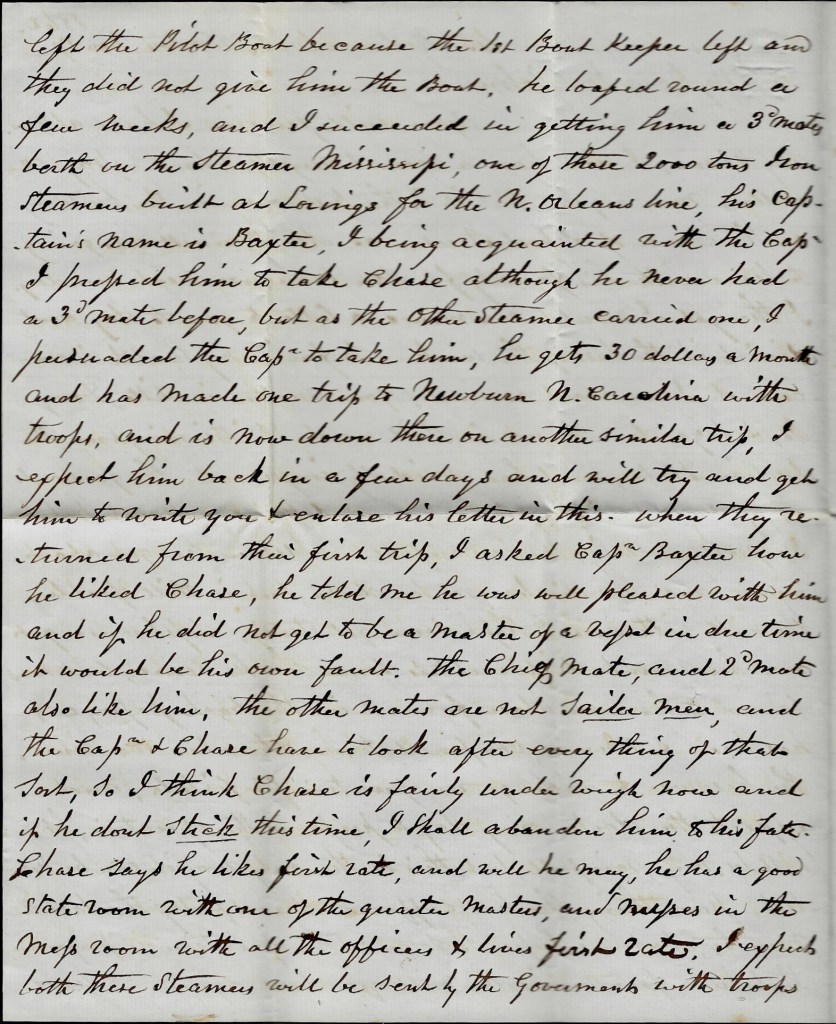 left the Pilot Boat because the 1st Boat Keeper left and
they did not give him the Boat. he loafed round a
few weeks, and I succeeded in getting him a 3d mates
berth on the Steamer Mississipi, one of those 2000 tons Iron
Steamers built at Lorings for the N. Orleans line, his cap-
-tain's name is Baxter, I being acquainted with the Capn
I pressed him to take Chase although he never had
a 3d mate before, but as the other Steamer carried one, I
persuaded the Capn to take him, he gets 30 dollars a Month
and has made one trip to Newburn N. Carolina with
troops, and is now down there on another similar trip, I
expect him back in a few days and will try and get
him to write you & enclose his letter in this. when they re-
-turned from their first trip, I asked Capn Baxter how
he liked Chase, he told me he was well pleased with him
and if he did not get to be a master of a vessel in due time
it would be his own fault. the Chief Mate, and 2d Mate
also like him, the other mates are not Sailer men, and
the Capn & Chase have to look after every thing of that
sort, so I think Chase is fairly under weigh now and
if he dont Stick this time, I shall abandon him to his fate.
Chase says he likes first rate, and well he may, he has a good
State room with one of the quarter masters, and messes in the
Mess room with all the officers & lives first rate. I expect
both these Steamers will be sent by the Goverment with troops